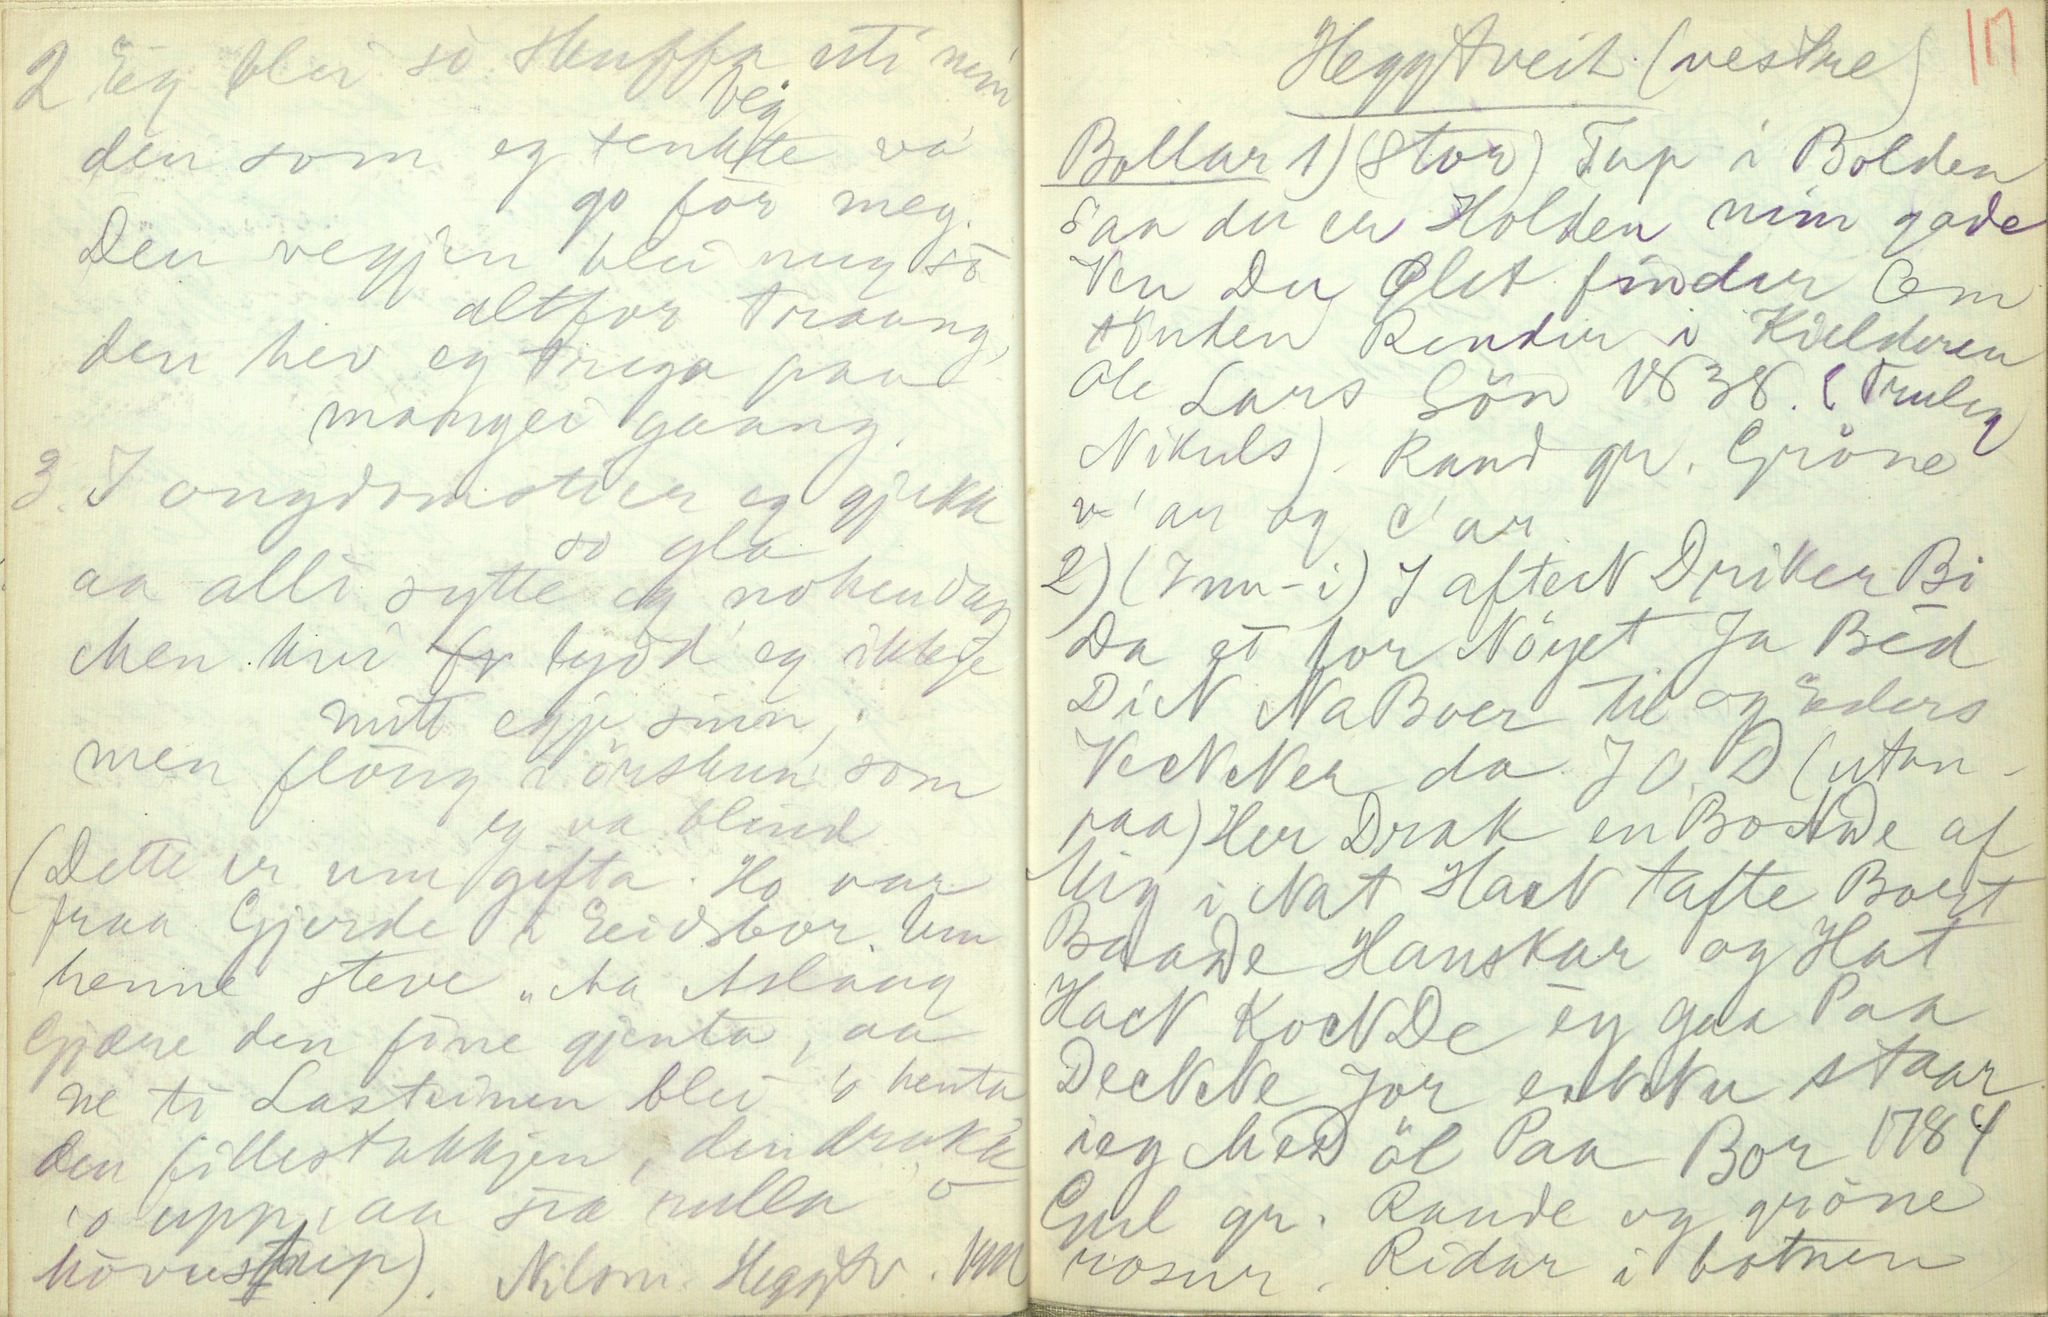 2 Eg blei so skuffa uti min
veg
den som eg tenkte va
go for meg.
Den vegjen blei meg so
altfor traang,
den hev eg trega paa
mangei gaang.
3. I ongdomstier eg gjekk
so gla
aa alli sytte eg nokendag
Men kvi lyd' eg ikkje
mitt egje sinn,
men flöng i örskun som
eg va blind
(Dette er um gifta. Ho var
fraa Gjerde i Eidsbor. Um
henne steve „Aa Aslaug
Gjære den fine gjenta, aa
ne ti Lasteinen blei 'o henta
den fillestakkjen, den drakk
'o upp, aa sia rulla 'o
hovustup). N. Olsm. Heggtv.
Heggtveit (vestre) 117
Bollar 1) (Stor) Tap i Bolden
Saa du er Holden min gode
Ven Du Glet finder Om
tönden Render i Kielderen
Ole Lars Sön 1838. (Truleg
Nikuls). Rand gr. Gröne
v'ar og c'ar
2) (Inn-i) I afteN Driker Bi
Da et for Nöyet Ja Bed
DiN NaBoer til og Eders
VeNNer da J O. D (utan-
paa) Her Drak en BoNDe af
Mig i Nat HaN tafte Bort
BaaDe Hanskar og Hat
HaN KoNDe ey gaa Paa
DeNNe Jor enNNu staar
ieg MeD öl Paa Bor 1784
Gul gr. Raude og gröne
rosur. Ridar i botnen